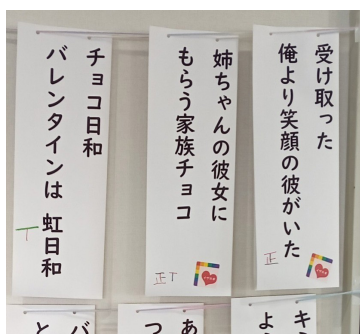 受け取った
俺より笑顔の彼がいた
正
姉ちゃんの彼女に
もらう家族チョコ
正T
チョコ日和
バレンタインは 虹日和
T
キ
よ
あ
つ
バ
と